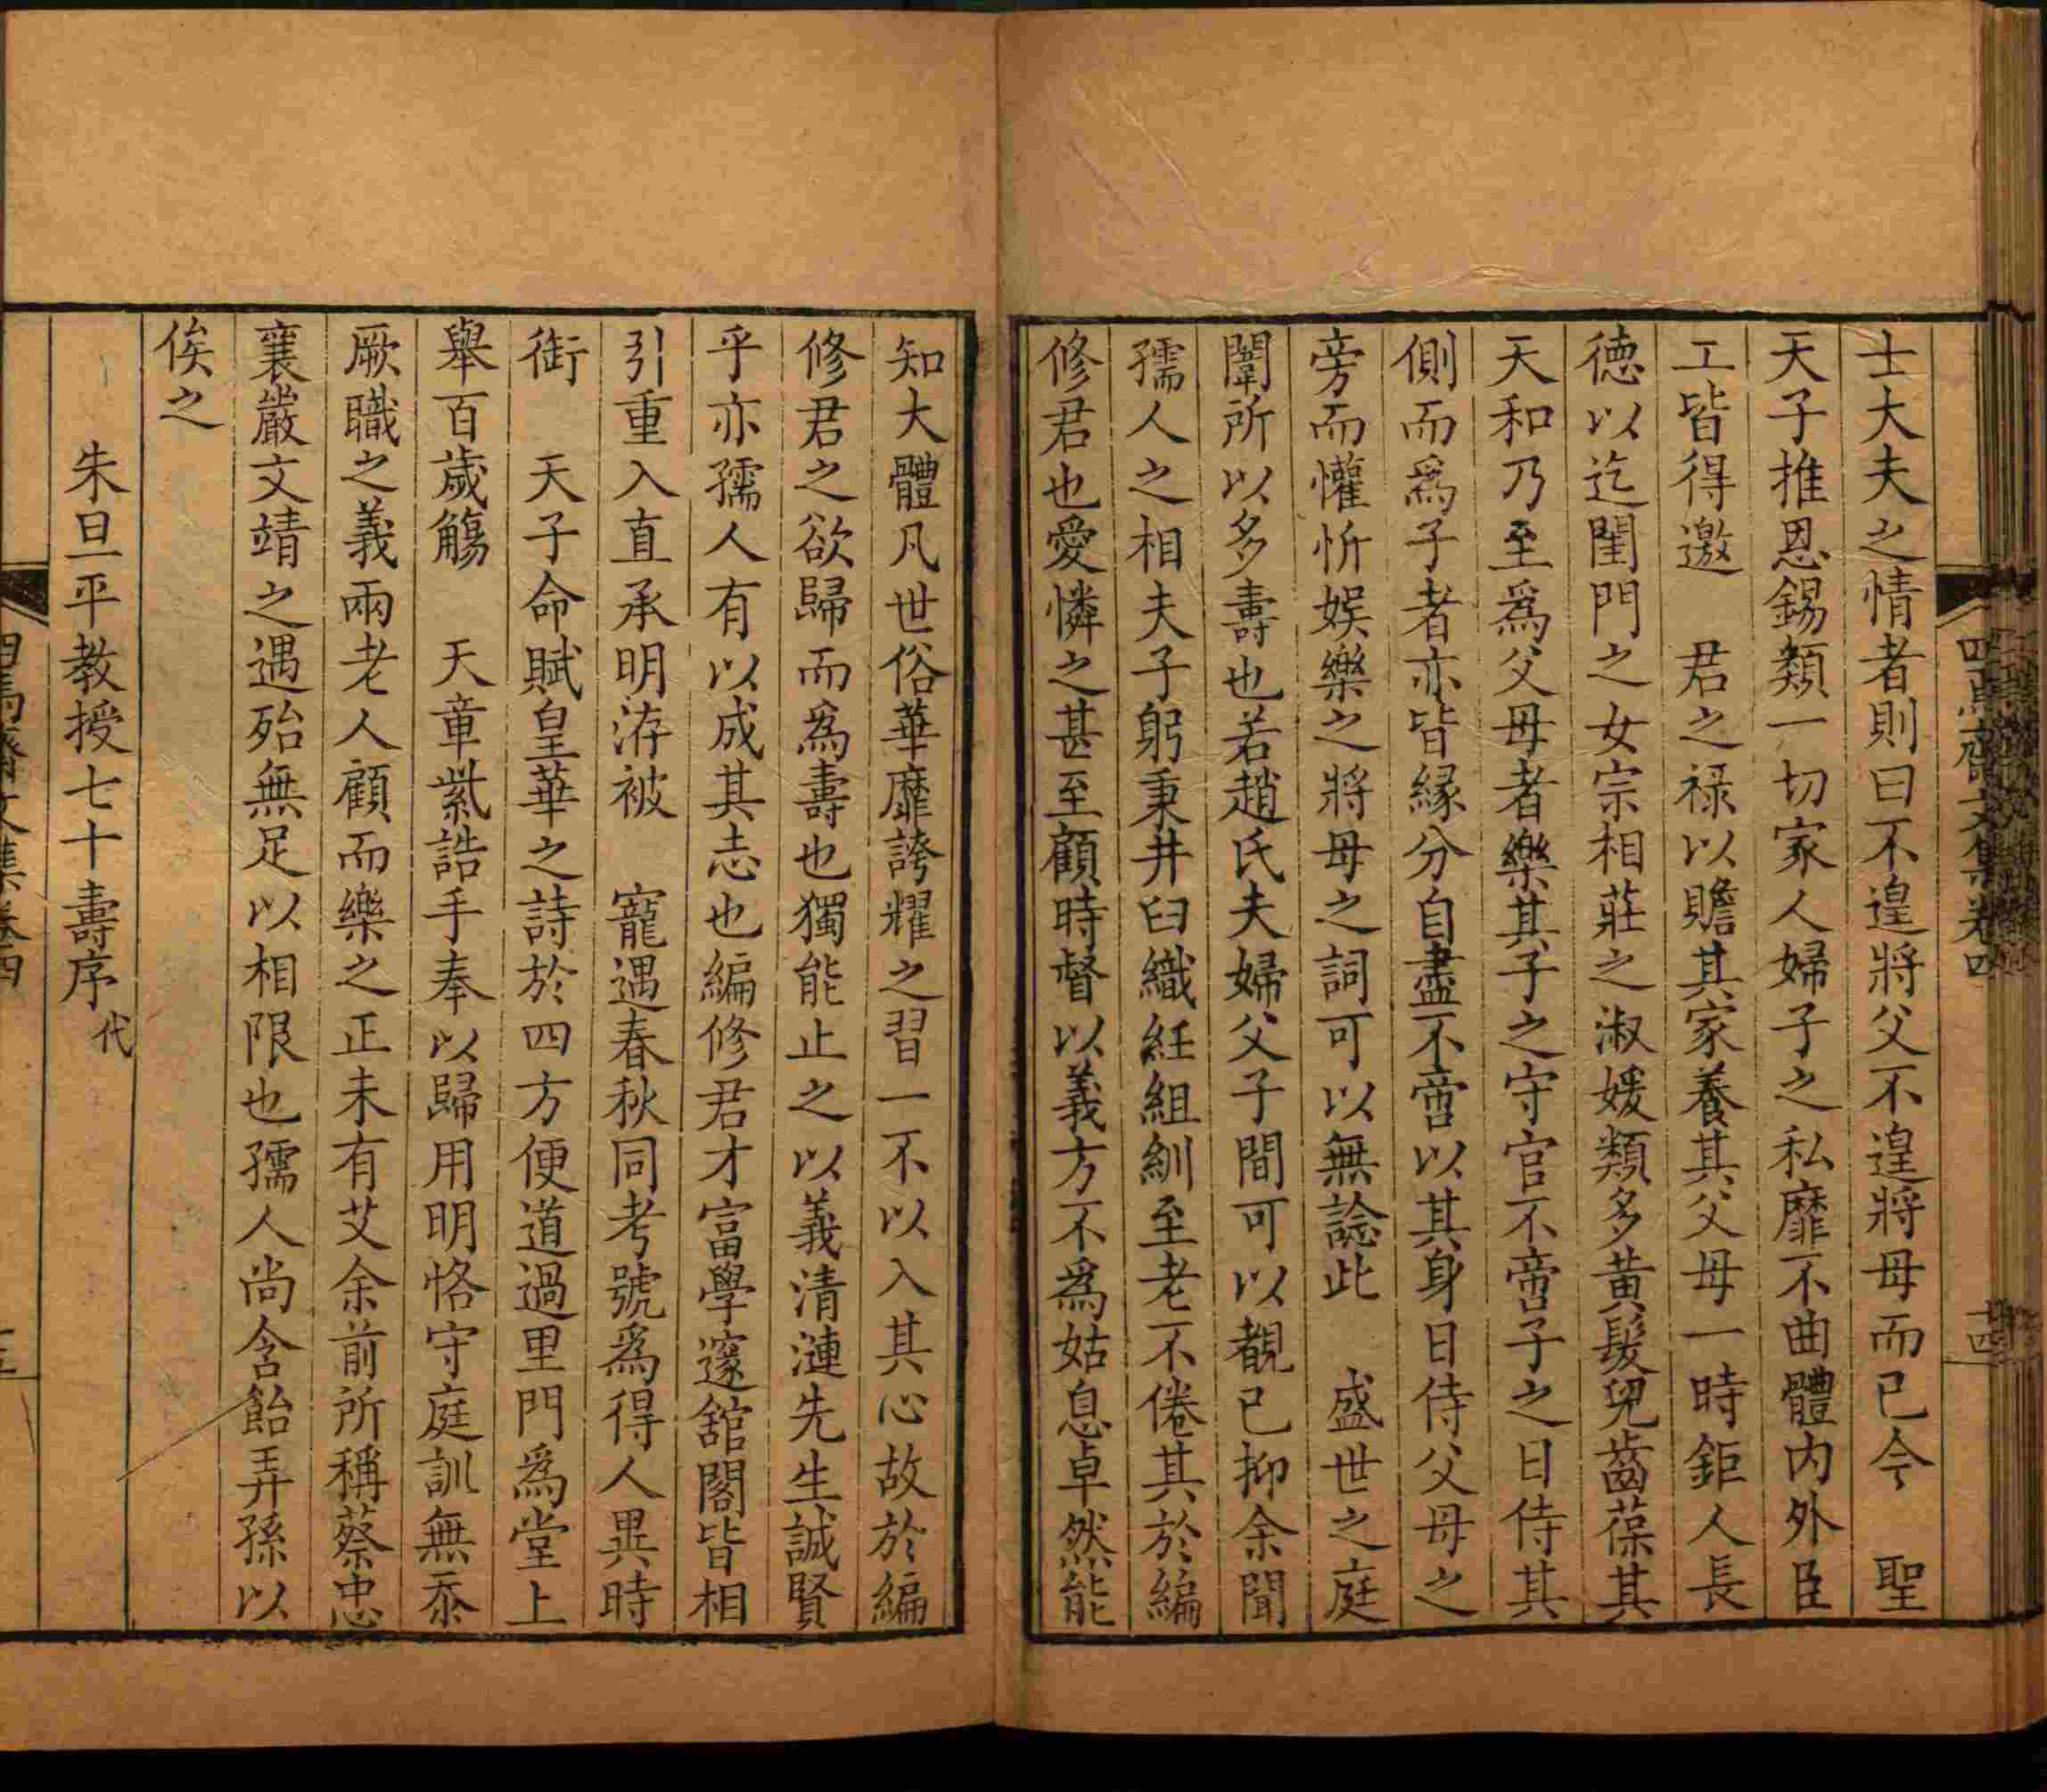 四焉齋文集卷四
十四
士大夫之情者則曰不遑將父不遑將母而已今　聖
天子推恩錫類一切家人婦子之私靡不曲體内外臣
工皆得邀　君之祿以贍其家養其父母一時鉅人長
德以迄閨門之女宗相莊之淑媛類多黃髮兒齒葆其
天和乃至爲父母者樂其子之守官不啻子之日侍其
側而爲子者亦皆緣分自盡不啻以其身日侍父母之
旁而懽忻娛樂之將母之詞可以無諗此　盛世之庭
闈所以多壽也若趙氏夫婦父子間可以覩已抑余聞
孺人之相夫子躬秉井臼織紝組紃至老不倦其於編
修君也愛憐之甚至顧時督以義方不爲姑息卓然能
知大體凡世俗華靡誇耀之習一不以入其心故於編
修君之欲歸而爲壽也獨能止之以義清漣先生誠賢
乎亦孺人有以成其志也編修君才富學邃舘閣皆相
引重入直承明洊被　寵遇春秋同考號爲得人異時
銜　天子命賦皇華之詩於四方便道過里門爲堂上
舉百歲觴　天章紫誥手奉以歸用明恪守庭訓無忝
厥職之義兩老人顧而樂之正未有艾余前所稱蔡忠
襄嚴文靖之遇殆無足以相限也孺人尚含飴弄孫以
俟之
朱旦平教授七十壽序代